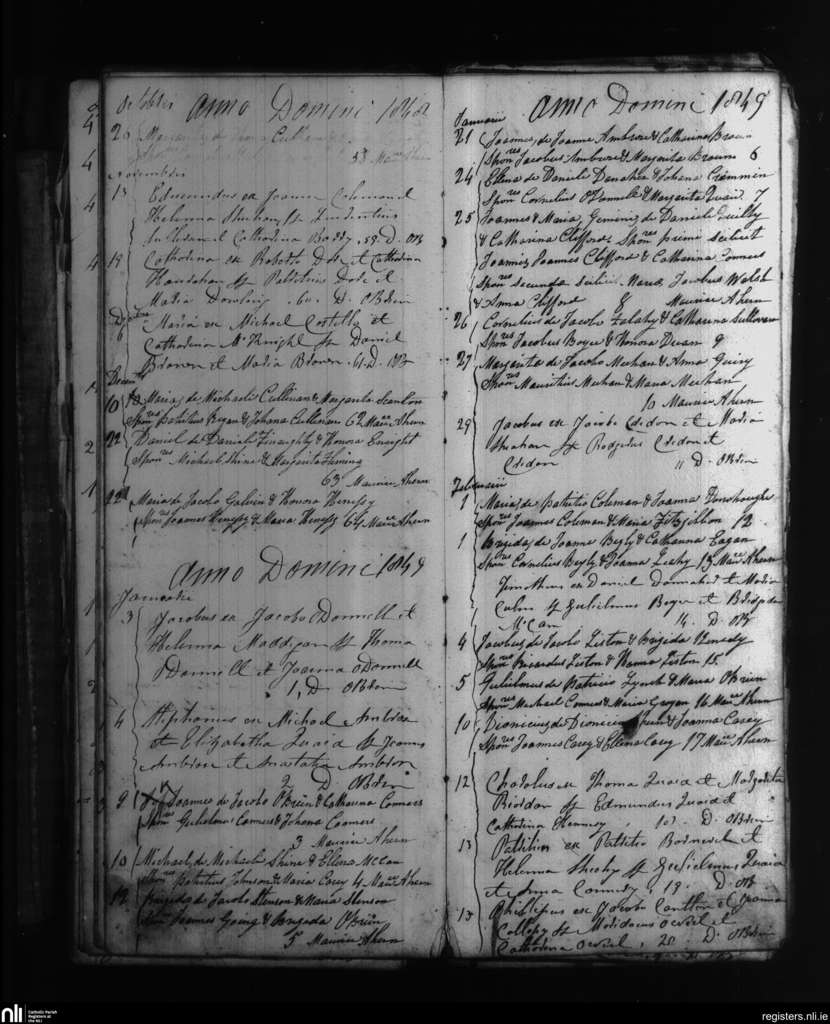 Octobris Anno Domini 1848
26
58 Mau Ahern
Novembris
13 Edmundus ex Joanna Colemand
Helenna Sheehan Sp
Cathorina Boddy. 59. D. OB
18 Cathorina ex Roberto Dore et Cathorina
Hanrahan Sp Patritius Dore et
Maria Dowling. 60. D. OBrien
6 Maria ex Michael Costello et
Cathorina McKnight Sp Daniel
Brown et Maria Brown. 61. D. OB
Decembris
10 Maria, de Michaele Cullinan & Margarita Scanlon
Sponres Patritius Regan & Johana Cullinane 62 Mau Ahern
22 Daniel de Daniele Finaughty & Honora Enright
Sponres Michael Shine & Margarita Fleming
63 Maurice Ahern
22 Maria de Jacobo Galvin & Honora Henessy
Sponres Joannes Henessy & Maria Henessy 64 Mau Ahern
Anno Domini 1849
Januarii
3 Jacobus ex Jacobo ODonnell et
Helenna Maddigan Sp Thoma
ODonnell et Joanna ODonnell
1, D OBrien
4 Alphonsus ex Michael Ambrose
et Elizabetha Quaid Sp Joannis
Ambrose et Anastatia Ambrose
2 D. OBrien
9 Joannes de Jacobo OBrien & Catharina Connors
Sponres Gulielmus Connors & Johana Connors
3 Maurice Ahern
10 Michael, de Michaele Shine & Ellena McCan
Sponres Patritius Johnson & Maria Casey 4 Mau Ahern
Brigida de Jacobo Stenson & Maria Stenson
Sponres Joannes Going & Brigida OBrien
5 Maurice Ahern
Anno Domini 1849
Januarii
21 Joannes, de Joanne Ambrose & Catharina Brown
Sponres Jacobus Ambrose & Margarita Brown 6
24 Ellena de Daniele Danaher & Johana Cremmin
Sponres Cornelius ODonnell & Margarita Quaid 7
25 Joannes & Maria, Gemini, de Daniele Quilty
& Catharina Clifford, Sponres primi scilicet
Joannis, Joannes Clifford & Catharina Connors
Sponres secunda scilicet Maria, Jacobus Walsh
& Anna Clifford 8 Maurice Ahern
26 Cornelius de Jacobo Falahy & Catharina Sullivan
Sponres Jacobus Boyce & Honora Dwan 9
27 Margarita de Jacobo Meehan & Anna Guiry
Sponres Mauritius Meehan & Maria Meehan
10 Maurice Ahern
29 Jacobus ex Jacobo Credon et Maria
Shrahan Sp Rodgerus Credon et
Credon 11 D. OBrien
Februarii
1 Maria, de Patritio Coleman & Joanna Donohoughe
Sponres Joannes Coleman & Maria Fitzgibbon 12
1 Brigida, de Joanne Begly & Catharina Eagan
Sponres Cornelius Begly & Joanna Leahy 13 Mau Ahern
Timotheus ex Daniel Donnaher et Maria
Culm Sp Gulielmus Boyce et Bridgida
McCan 14. D. OB
4 Jacobus, de Jacobo Liston & Brigida Kennedy
Sponres Ricardus Liston & Hanna Liston 15.
5 Gulielmus de Patricio Lynch & Maria OBrien
Sponres Michael Connors & Maria Grogan 16 Mau Ahern
10 Dionicius, de Dionicio Sheehy & Joanna Casey
Sponres Joannes Casey & Ellena Casey 17 Mau Ahern
12 Charolus ex Thoma Quaid et Margarita
Riordan Sp Edmundus Quaid et
Catherina Hennesy, 18. D. OBrien
13 Patritius ex Patritio Bornwell et
Helenna Sheehy Sp Gulielmus Quaid
et Anna Connery, 19. D. OB
13 Phillipus ex Jacobo Canthon et Joanna
Collopy Sp et
Catherina, 20. D. OBrien
nli
Catholic Parish
Registers at
the NLI
registers.nli.ie